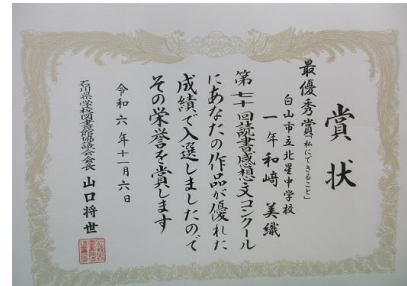 賞状
最優秀賞「私にできること」
白山市立北星中学校
一年 和﨑 美織
第七十回読書感想文コンクール
にあなたの作品が優れた
成績で入選しましたので
その栄誉を賞します
令和六年十一月六日
石川県学校図書館協議会会長 山口将世